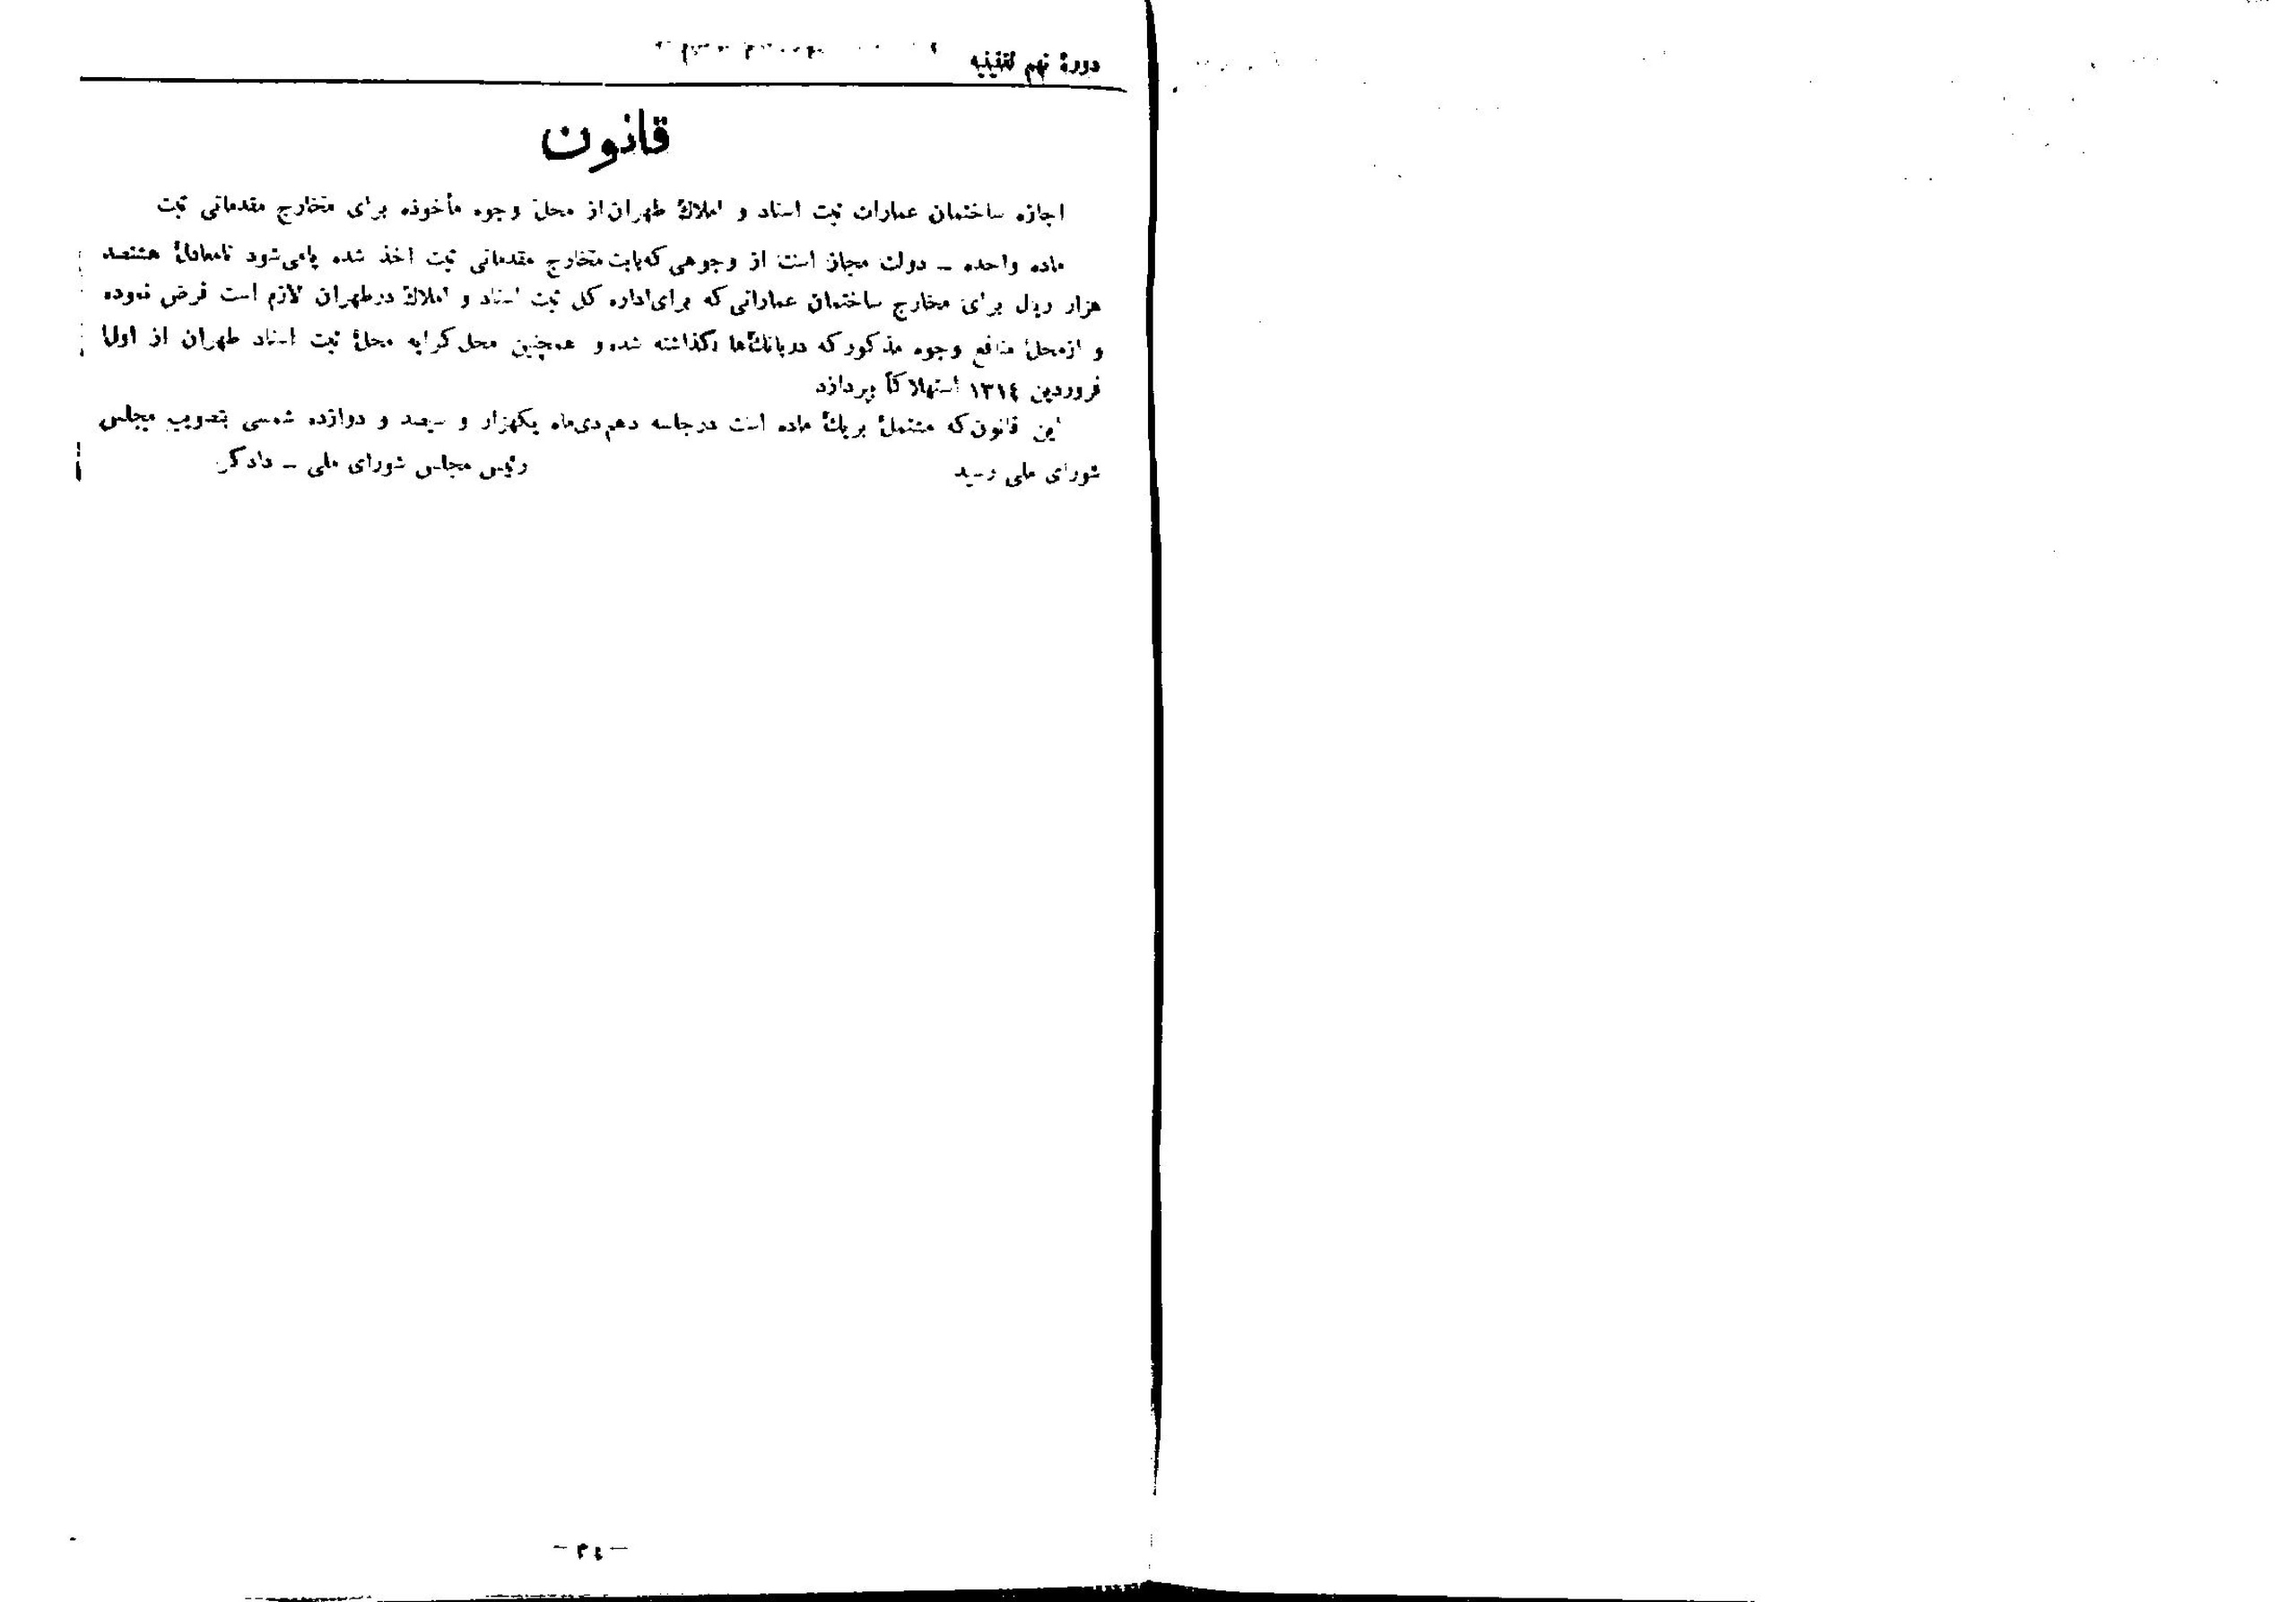 دورهٔ نهم تقنینیه
قانون
اجازه ساختمان عمارات ثبت اسناد و املاک طهران از محل وجوه مأخوذه برای مخارج مقدماتی ثبت
ماده واحده ـ دولت مجاز است از وجوهی که بابت مخارج مقدماتی ثبت اخذ شده یا می‌شود تا معادل هشتصد
هزار ریال برای مخارج ساختمان عماراتی که برای اداره کل ثبت اسناد و املاک در طهران لازم است قرض نموده
و از محل منافع وجوه مذکور که در بانک‌ها گذاشته شده و همچنین محل کرایه محل ثبت اسناد طهران از اول
فروردین ۱۳۱٤ استهلاکاً بپردازد
این قانون که مشتمل بر یک ماده است در جلسه دهم دی‌ماه یکهزار و سیصد و دوازده شمسی بتصویب مجلس
شورای ملی رسید رئیس مجلس شورای ملی ـ دادگر